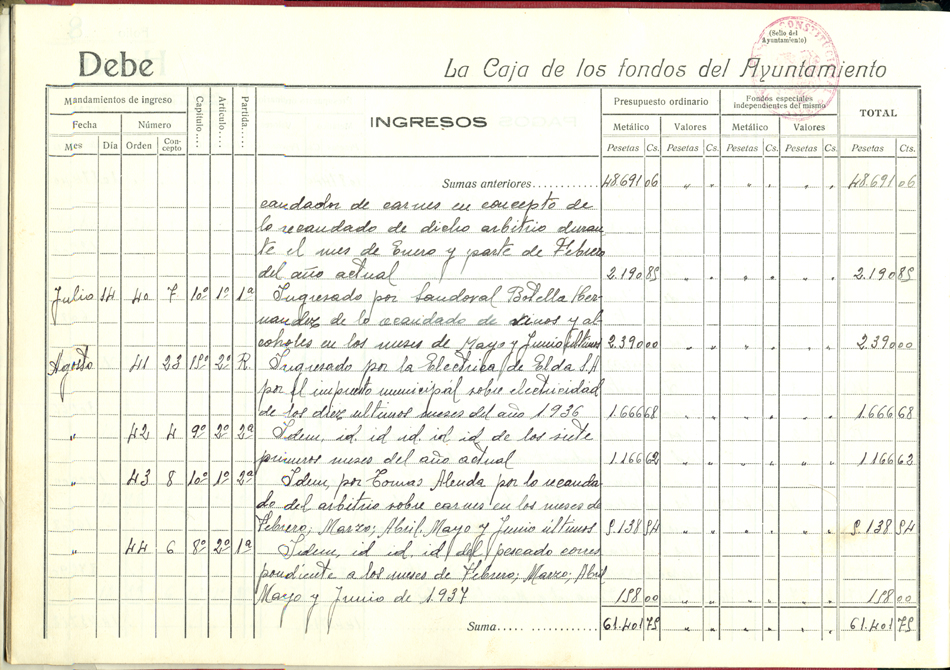 (Sello del
Ayuntamiento)
Debe
La Caja de los fondos del Ayuntamiento
Mandamientos de ingreso Capítulo.... Artículo.... Partida.... INGRESOS Presupuesto ordinario Fondos especiales independientes del mismo TOTAL
Fecha Número Metálico Valores Metálico Valores
Mes Día Orden Con-cepto Pesetas Cs. Pesetas Cs. Pesetas Cs. Pesetas Cs. Pesetas Cts.
Sumas anteriores............ 48.691 06 „ „ „ „ „ „ 48.691 06
caudador de carnes en concepto de
lo recaudado de dicho arbitrio duran
te el mes de Enero y parte de Febrero
del año actual 2.190 85 „ „ „ „ „ „ 2.190 85
Julio 14 40 7 10º 1º 1ª Ingresado por Sandoval Botella Her-
nandez de lo recaudado de vinos y al-
coholes en los meses de Mayo y Junio últimos 2.390 00 „ „ „ „ „ „ 2.390 00
Agosto 41 23 15º 2º R. Ingresado por la Electrica de Elda S.A
por el impuesto municipal sobre electricidad
de los diez ultimos meses del año 1936 1.666 68 „ „ „ „ „ „ 1.666 68
„ 42 4 9º 2º 2ª Idem, id. id id. id id. de los siete
primeros meses del año actual 1.166 62 „ „ „ „ „ „ 1.166 62
„ 43 8 10º 1º 2ª Idem, por Tomas Alenda por lo recauda-
do del arbitrio sobre carnes en los meses de
Febrero; Marzo; Abril, Mayo y Junio ultimos 5.138 54 „ „ „ „ „ „ 5.138 54
„ 44 6 8º 2º 1ª Idem, id. id, id, del pescado corres
pondiente a los meses de Febrero; Marzo; Abril
Mayo y Junio de 1937 158 00 „ „ „ „ „ „ 158 00
Suma..... ............ 61.401 75 „ „ „ „ „ „ 61.401 75